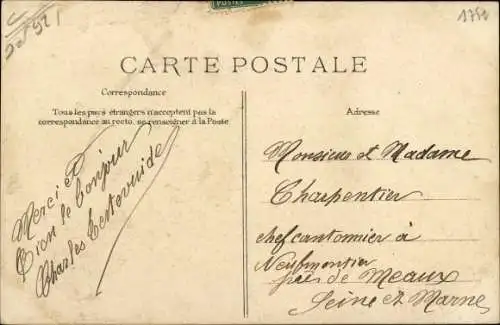 POSTES
1751
CARTE POSTALE
Correspondance
Tous les pays étrangers n'acceptent pas la
correspondance au recto, se renseigner à la Poste
Merci et
bien le bonjour
Charles
Adresse
Monsieur et Madame
Charpentier
chef cantonnier à
Neufmontier
près de Meaux
Seine et Marne